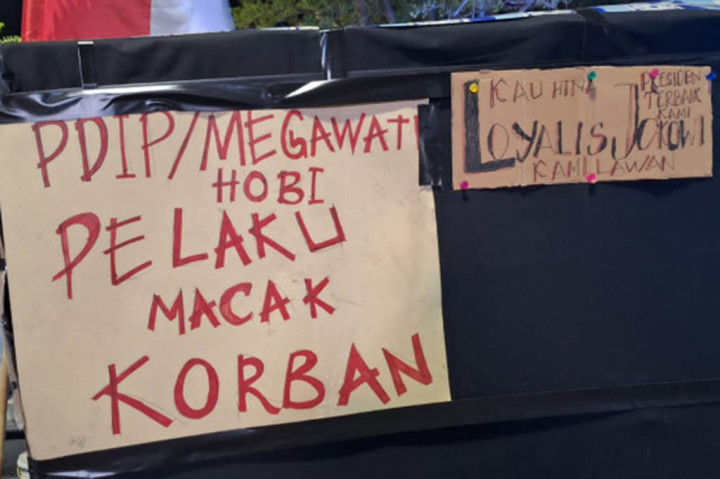 PDIP/MEGAWATI
HOBI
PELAKU
MACAK
KORBAN
KAU HINA PRESIDEN
TERBAIK
KAMI
LOYALIS JOKOWI
KAMI LAWAN